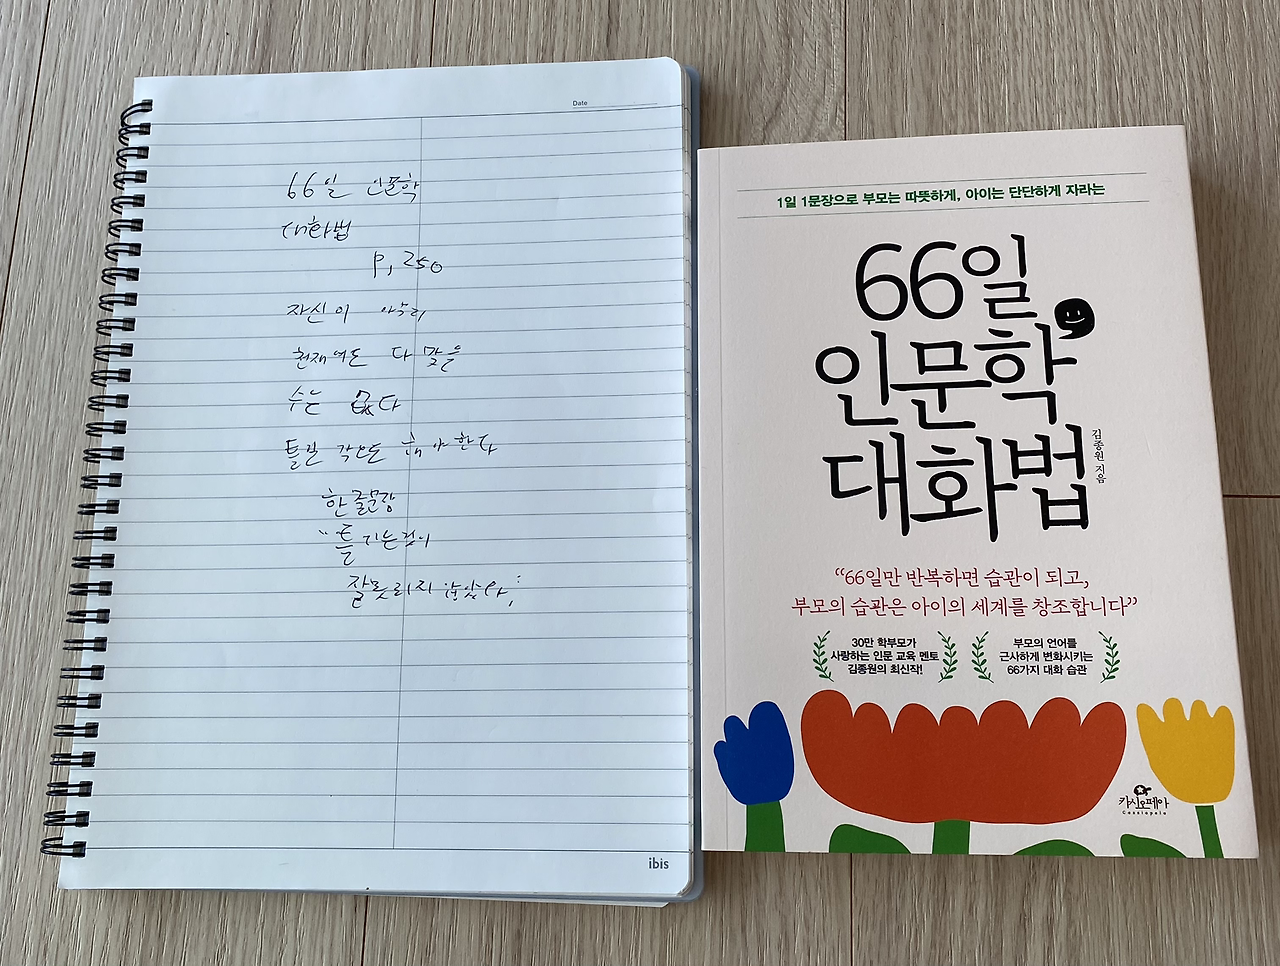 Date
66일 인문학
대화법
P, 250
자신이 아무리
천재여도 다 맞을
수는 없다
틀릴 각오도 해야 한다
한 줄 문장
"틀리는 것이
잘못되지 않았다"
ibis
1일 1문장으로 부모는 따뜻하게, 아이는 단단하게 자라는
66일
인문학
대화법
김종원 지음
“66일만 반복하면 습관이 되고,
부모의 습관은 아이의 세계를 창조합니다”
30만 학부모가
사랑하는 인문 교육 멘토
김종원의 최신작!
부모의 언어를
근사하게 변화시키는
66가지 대화 습관
카시오페아
Cassiopeia